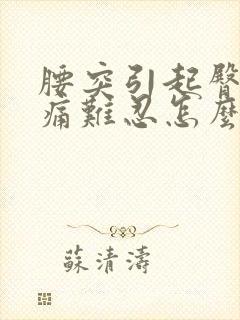 腰突引起臀
痛難忍怎麼
蘇清濤